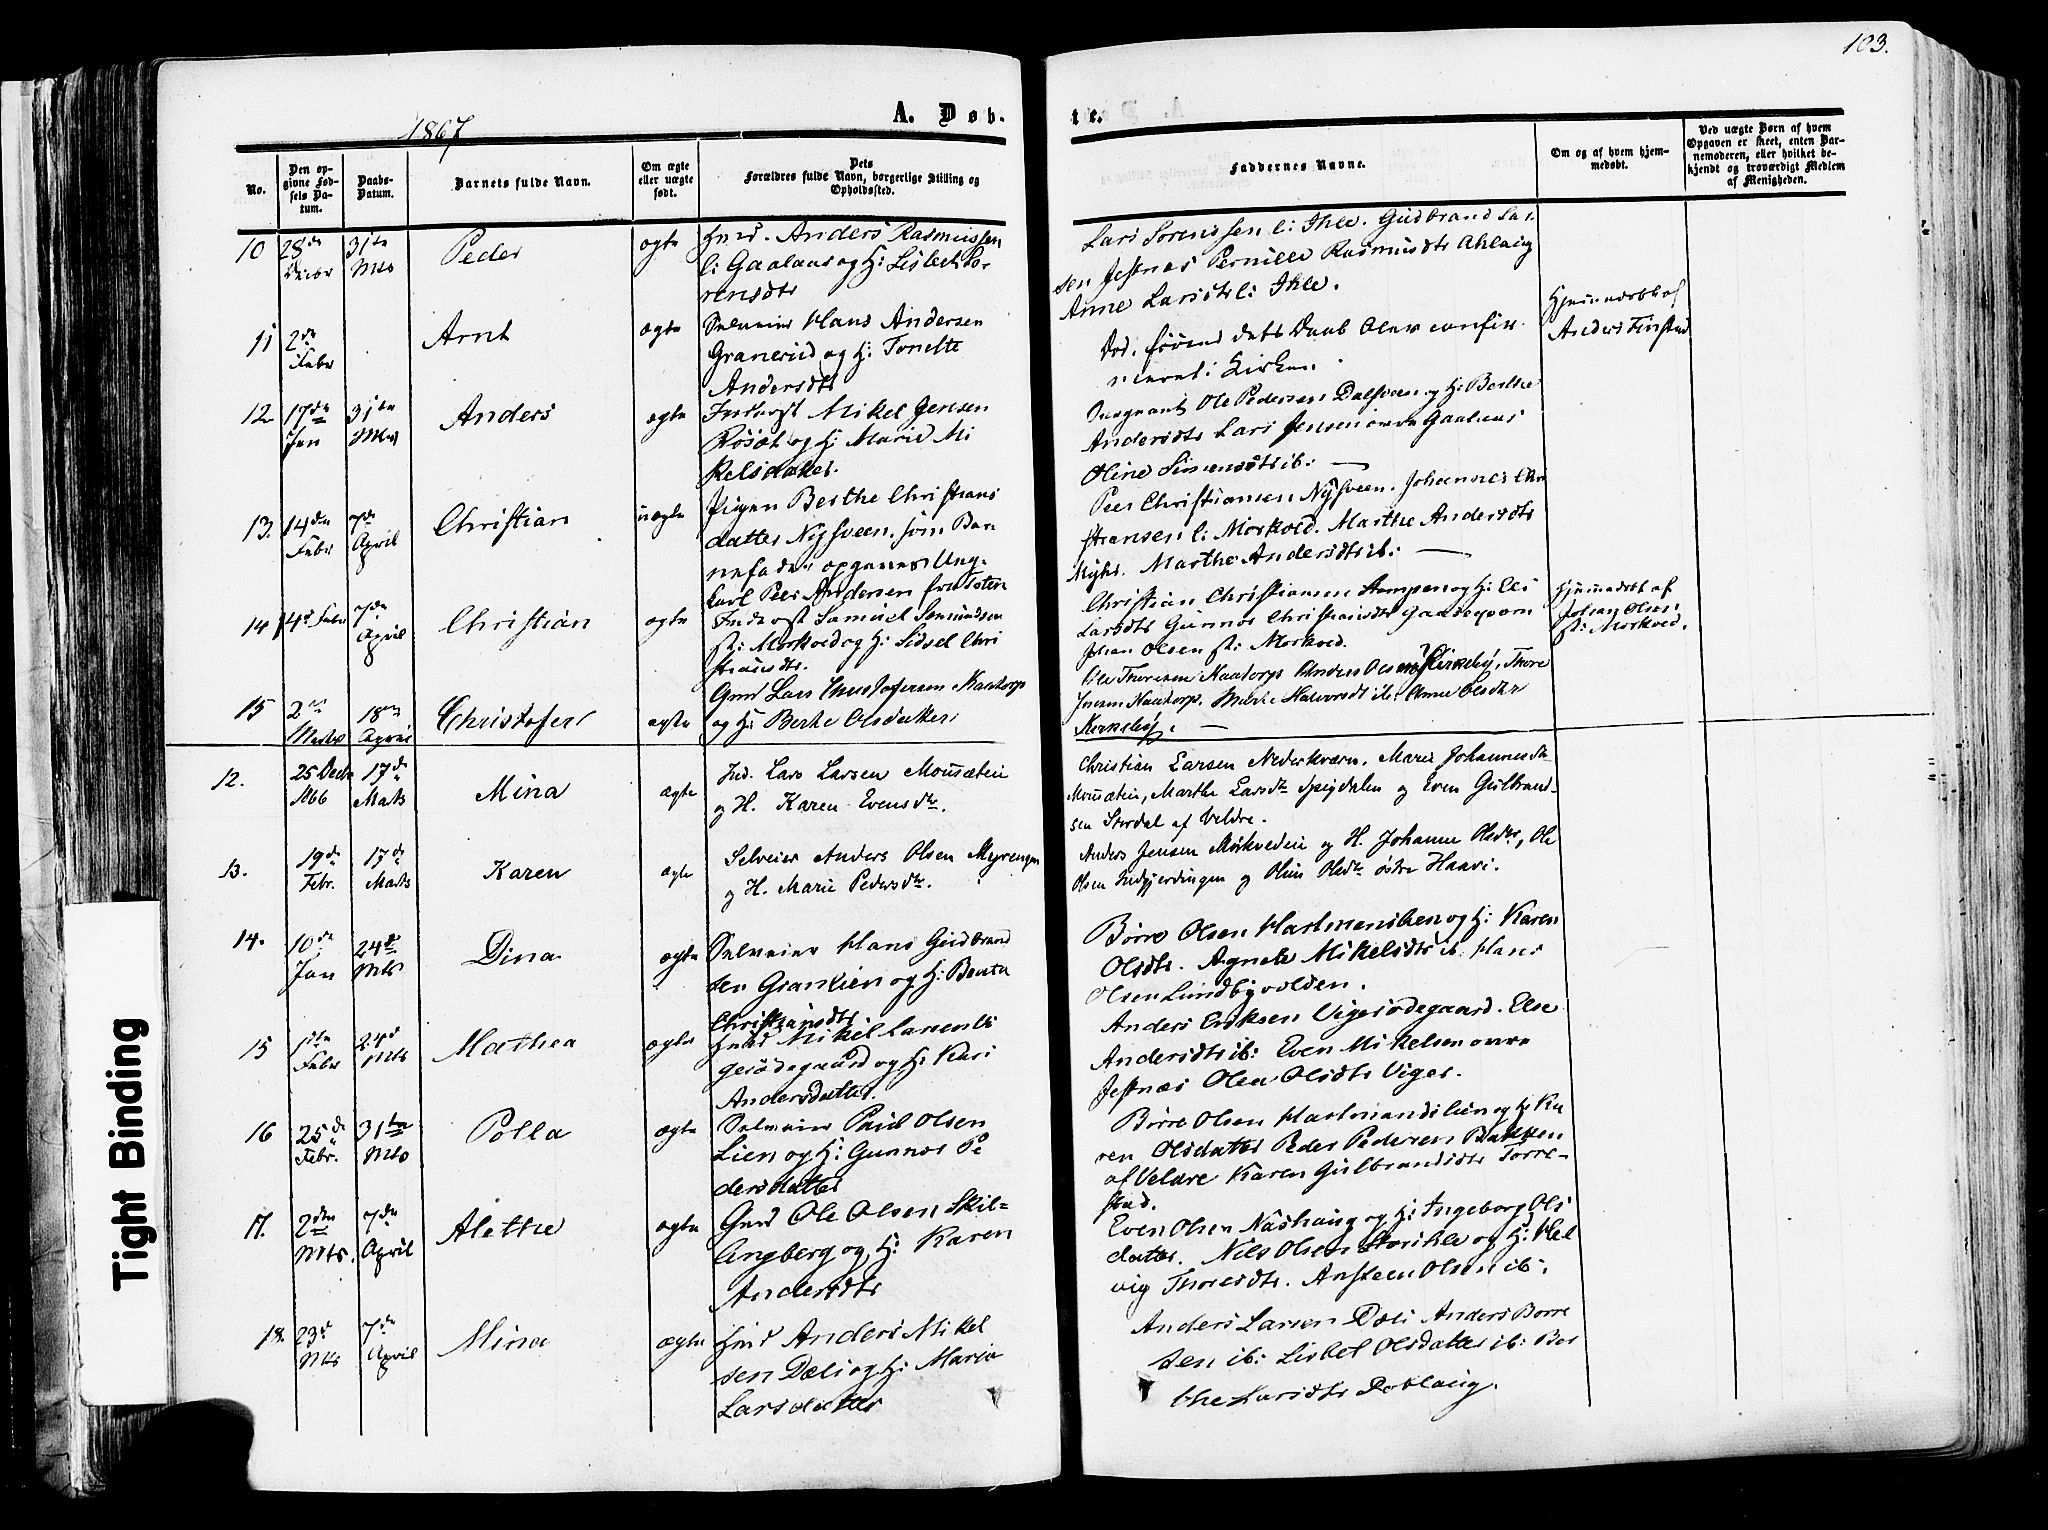 103.
1867
A. Døb-
te.
No.
Den op-
givne Fød-
sels Da-
tum.
Daabs-
Datum.
Barnets fulde Navn.
Om ægte
eller uægte
født.
Dets
Forældres fulde Navn, borgerlige Stilling og
Opholdssted.
Faddernes Navne.
Om og af hvem hjem-
medøbt.
Ved uægte Børn af hvem
Opgaven er skeet, enten Bar-
nemoderen, eller hvilket be-
kjendt og troværdigt Medlem
af Menigheden.
10 28de 31te Peder ægte Hmd. Anders Rasmussen
Mts
li Gaalaas og H: Lisbeth So-
rensdtr
Lars Sorenssen li Ihle. Gudbrand Lar-
sen Jessnæs Pernille Rasmusdtr
Anne Larsdtr li Ihle.
11 2de Febr Arnt ægte Selveier Hans Andersen
Granerud og H: Tonette
Andersdtr
Død. førend dets Daab blev confir-
meret i Kirken.
Hjemmedøbt af
Anders Finstad
12 17de Jan 31te Mts Anders ægte Inderst Mikel Jensen
Røsæt og H: Marie Mi
kelsdatter.
Ole Pedersen Dalsveen og H: Berthe
Andersdtr Lars Jensen øvre Gaalaas
Oline Simensdtr ib: —
13. 14de Febr 7de April Christian uægte Pigen Berthe Christians
datter Nysveen. som Bar
nefader opgives Ung-
karl Peer Andersen fra Toten
Peer Christiansen Nysveen. Johannes Chri
stiansen li Morkved. Marthe Andersdtr
Myhr. Marthe Andersdtr ib: —
14 4de Febr 7de April Christian ægte Inderst Samuel
st: Morkved og H: Sidsel Chri
stiansdtr.
Christian Christiansen Stompen og H: Eli
Larsdtr Gunnor Christiansdtr
Johan Olsen st: Morkved.
Hjemmedøbt af
Johan Olsen
st: Morkved.
15 2den Marts 18de April Christofer ægte Gmd Lars Christofersen Kastorp
og H: Berte Olsdatter
Ole Thoresen Kaatorp Anders Olsen Kirkeby, Thore
Jensen Kaatorp. Marte Halvorsdt ib: Anne Olsdtr
Kirkeby. —
12. 25 Decbr 1866 17de Marts Mina ægte Ind. Lars Larsen Mousætin
og H. Karen Evensdtr.
Christian Larsen Nederkværn. Marie Johannesdtr
Mousætin, Marthe Larsdtr Speydalen og Even Gulbrand-
sen Stordal af Veldre.
13. 19de Febr. 17de Marts Karen ægte Selveier Anders Olsen Myrengen
og H. Marie Pedersdtr.
Anders Jensen Mørkvedin og H. Johanne Olsdtr, Ole
Olsen Indgjerdingen og Oline Olsdtr østre Haavi.
14. 10de Jan 24de Mts Dina ægte Selveier Hans Gudbrand
sen Granlien og H: Bente
Christiansdtr
Børre Olsen Hartmenslien og H: Karen
Olsdtr. Agnete Mikelsdtr ib: Hans
Olsen Lundbyvolden.
15 1ste Febr 24de Mts Mathea ægte Hmd Mikel Larsen Vi
gesødegaard og H: Kari
Andersdatter.
Anders Eriksen Vigesødegaard. Else
Andersdtr ib: Even Mikelsen øvre
Jesnæs Olea Olsdtr Viger.
16 25de Febr. 31te Mts Polla ægte Selveier Paul Olsen
Lien og H: Gunnor Pe
dersdatter
Børre Olsen Hartmandslien og H: Ka
ren Olsdatter Peder Pedersen Bakken
af Veldre Karen Gulbrandsdtr Torre-
stad.
17. 2den Mts. 7de April Alethe ægte Gmd Ole Olsen Skil-
lingberg og H: Karen
Andersdtr
Even Olsen Nashaug og H: Ingeborg Ols
datter. Nils Olsen Storihle og H: Hel
vig Thoresdtr. Ansteen Olsen ib:
18. 23de Mts 7de April Mina ægte Hmd Anders Mikel
sen Dæli og H: Marie
Larsdatter
Anders Larsen Dæli Anders Børre
sen ib: Lisbet Olsdatter ib: Ber
the Larsdtr Doblaug.
Tight Binding